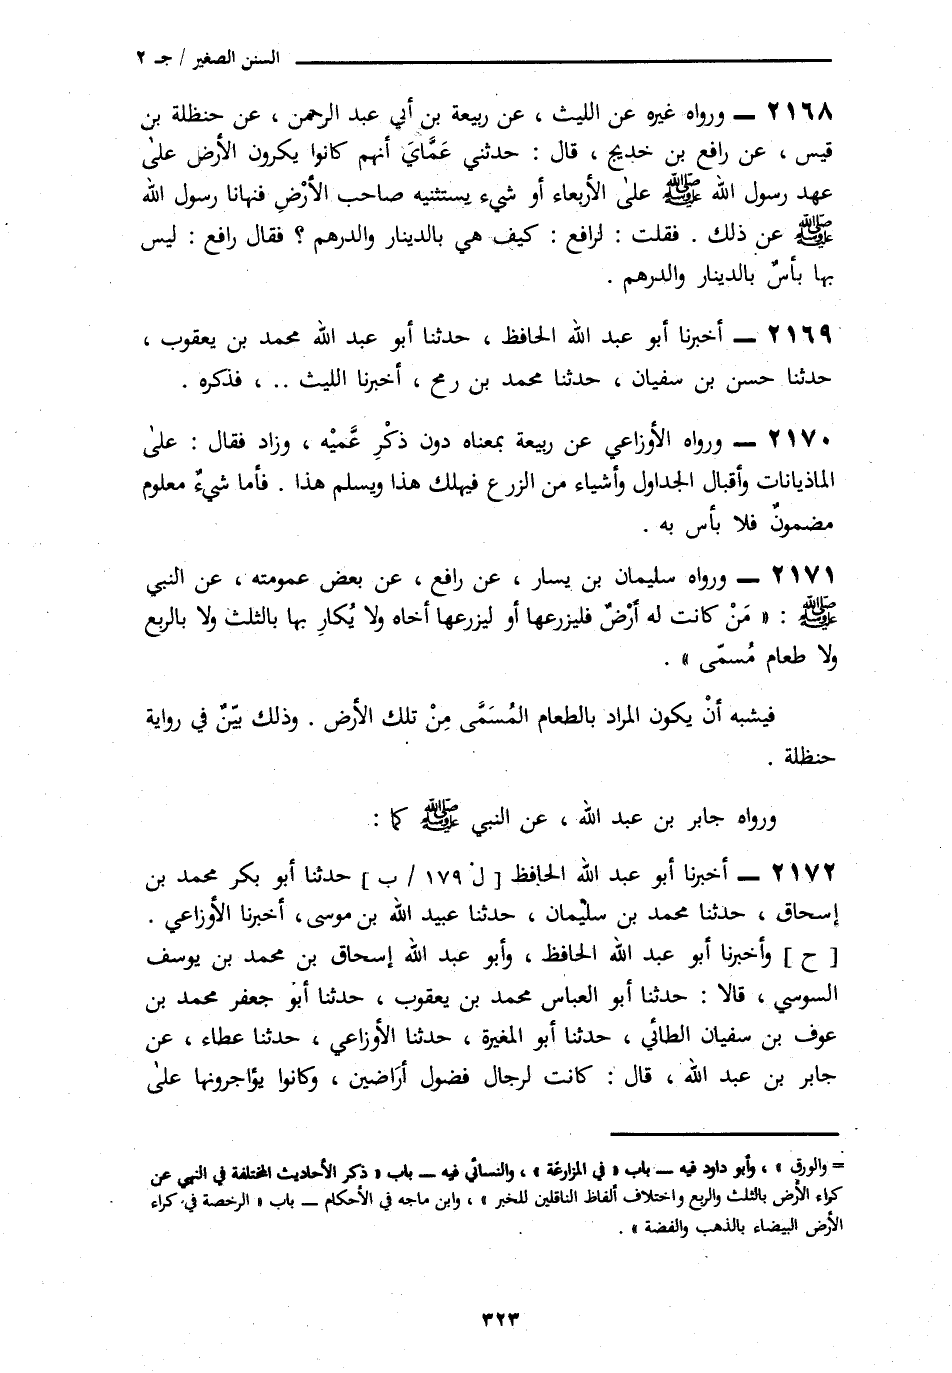 السنن الصغير / جـ ٢
٢١٦٨ ــ ورواه غيره عن الليث ، عن ربيعة بن أبي عبد الرحمن ، عن حنظلة بن
قيس ، عن رافع بن خديج ، قال : حدثني عَمَّايَ أنهم كانوا يكرون الأرض علىٰ
عهد رسول الله ﷺ علىٰ الأربعاء أو شيء يستثنيه صاحب الأرْضِ فنهانا رسول الله
ﷺ عن ذلك . فقلت : لرافع : كيف هي بالدينار والدرهم ؟ فقال رافع : ليس
بها بأسٌ بالدينار والدرهم .
٢١٦٩ ــ أخبرنا أبو عبد الله الحافظ ، حدثنا أبو عبد الله محمد بن يعقوب ،
حدثنا حسن بن سفيان ، حدثنا محمد بن رمح ، أخبرنا الليث .. ، فذكره .
٢١٧٠ ــ ورواه الأوزاعي عن ربيعة بمعناه دون ذكْرِ عَّميْه ، وزاد فقال : علىٰ
الماذيانات وأقبال الجداول وأشياء من الزرع فيهلك هذا ويسلم هذا . فأما شيءٌ معلوم
مضمونٌ فلا بأس به .
٢١٧١ ــ ورواه سليمان بن يسار ، عن رافع ، عن بعض عمومته ، عن النبي
ﷺ : « مَنْ كانت له أرْضٌ فليزرعها أو ليزرعها أخاه ولا يُكارِ بها بالثلث ولا بالربع
ولا طعام مُسمّى » .
فيشبه أنْ يكون المراد بالطعام المُسَمَّى مِنْ تلك الأرض . وذلك بيّنٌ في رواية
حنظلة .
ورواه جابر بن عبد الله ، عن النبي ﷺ كما :
٢١٧٢ ــ أخبرنا أبو عبد الله الحافظ [ ل ١٧٩ / ب ] حدثنا أبو بكر محمد بن
إسحاق ، حدثنا محمد بن سليمان ، حدثنا عبيد الله بن موسى، أخبرنا الأوزاعي .
[ ح ] وأخبرنا أبو عبد الله الحافظ ، وأبو عبد الله إسحاق بن محمد بن يوسف
السوسي ، قالا : حدثنا أبو العباس محمد بن يعقوب ، حدثنا أبو جعفر محمد بن
عوف بن سفيان الطائي ، حدثنا أبو المغيرة ، حدثنا الأوزاعي ، حدثنا عطاء ، عن
جابر بن عبد الله ، قال : كانت لرجال فضول أرَاضين ، وكانوا يؤاجرونها علىٰ
= والورق » ، وأبو داود فيه ــ باب « في المزارعة » ، والنسائي فيه ــ باب « ذكر الأحاديث المختلفة في النهي عن
كراء الأرض بالثلث والربع واختلاف ألفاظ الناقلين للخبر » ، وابن ماجه في الأحكام ــ باب « الرخصة في كراء
الأرض البيضاء بالذهب والفضة » .
٣٢٣